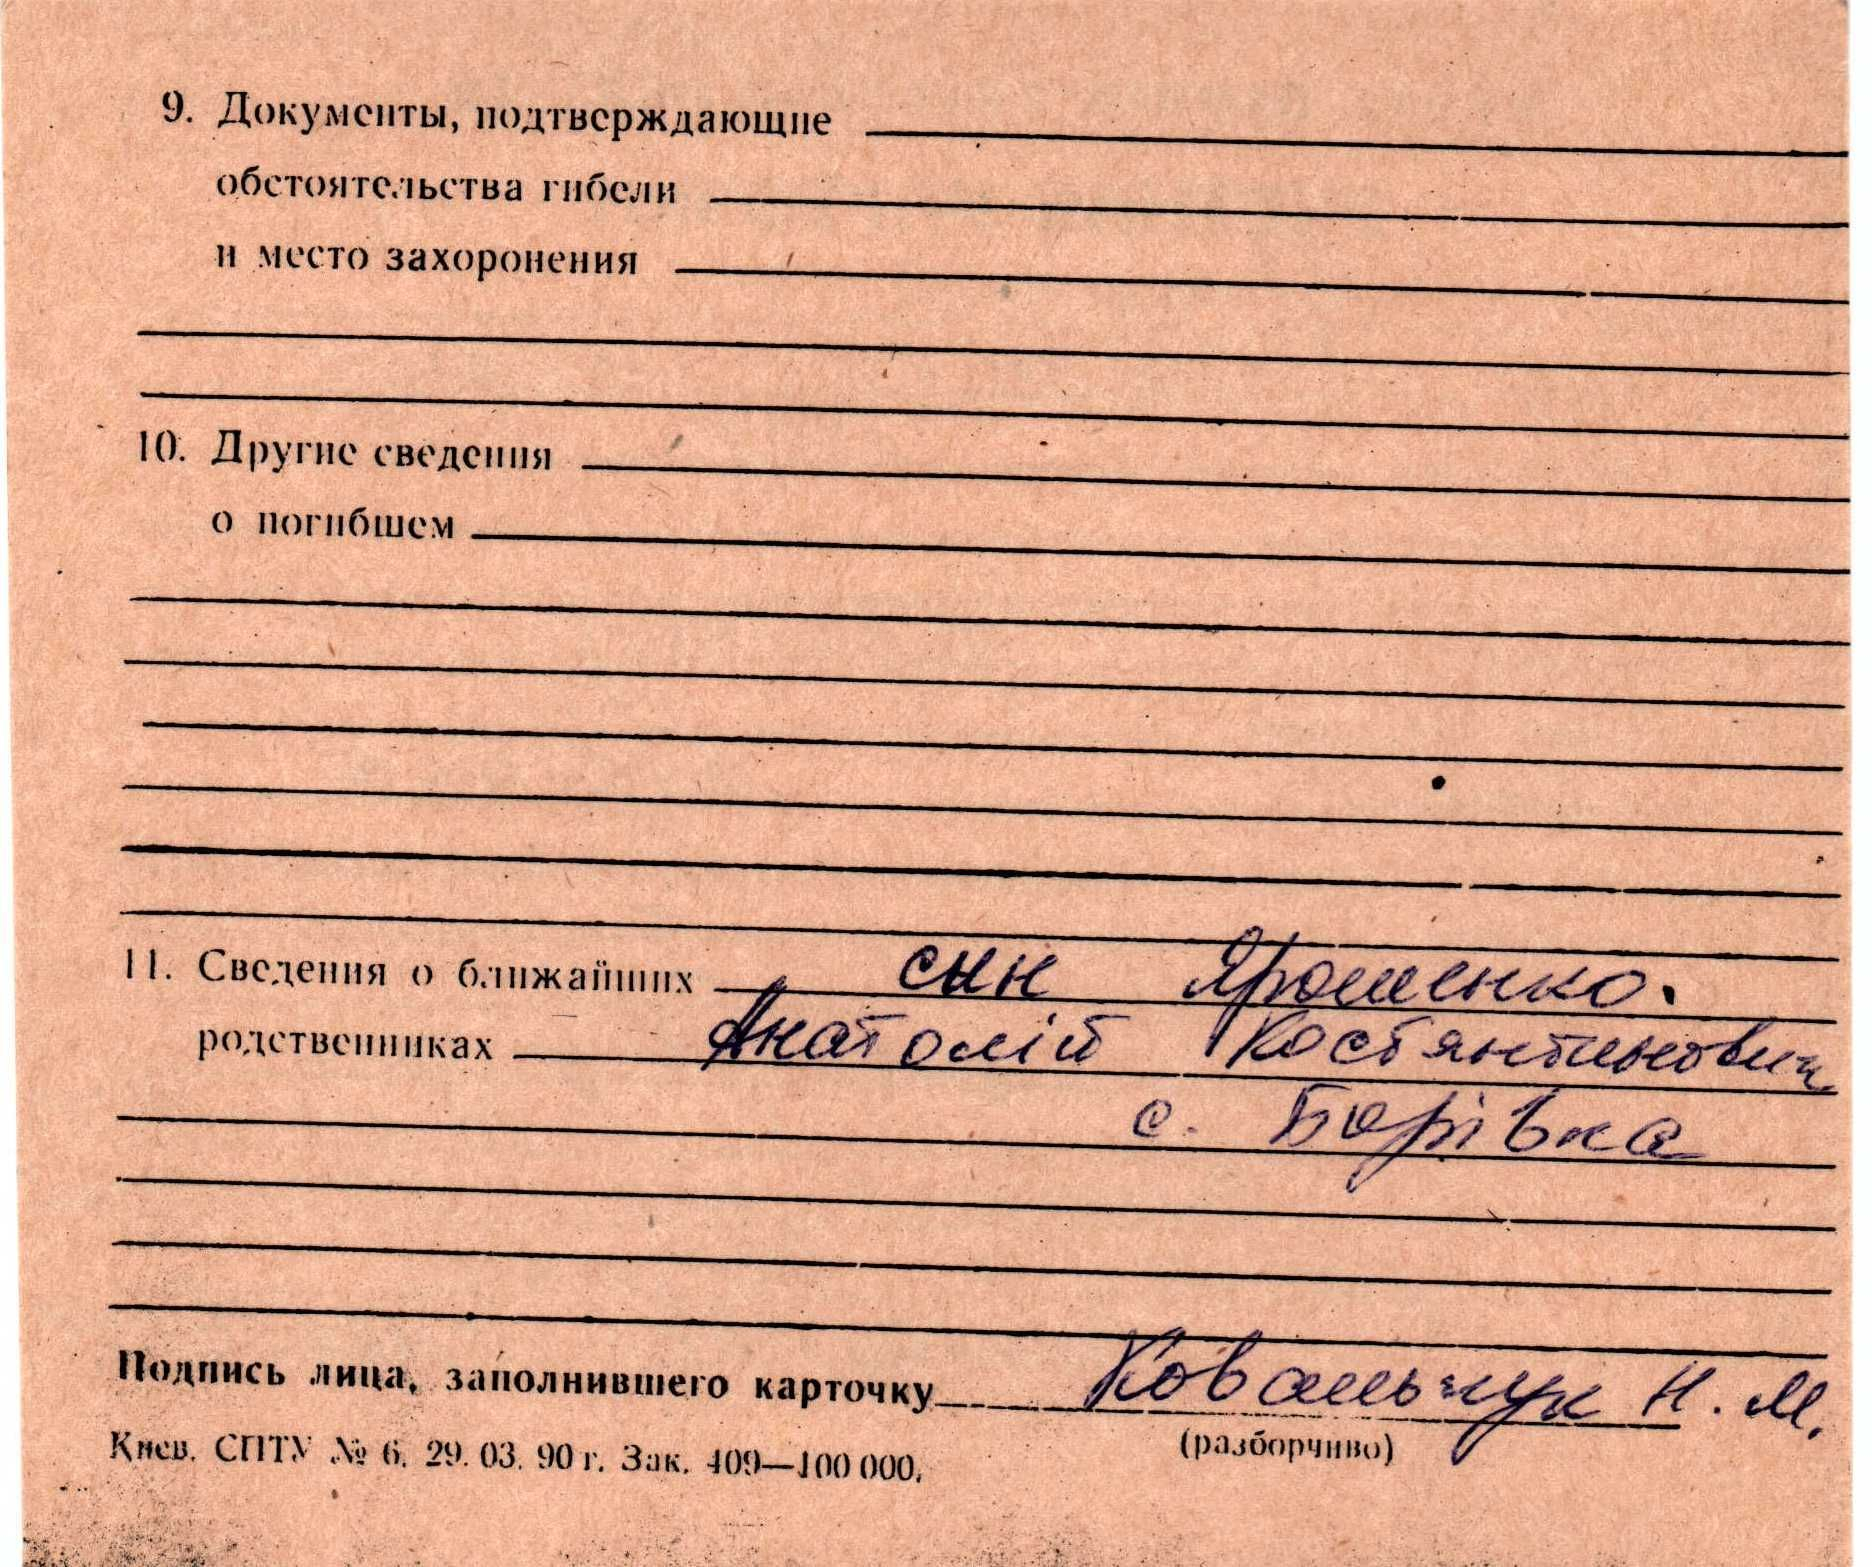 9. Документы, подтверждающие
обстоятельства гибели
и место захоронения
10. Другие сведения
о погибшем
11. Сведения о ближайших син Ярошенко.
родственниках Анатолій Костянтинович
с. Борівка
Подпись лица, заполнившего карточку Ковальчук Н. М.
(разборчиво)
Киев. СПТУ № 6. 29. 03. 90 г. Зак. 409—100 000.